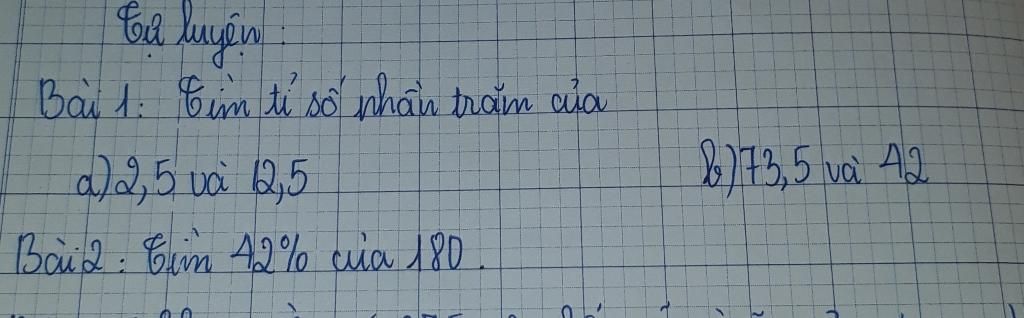 Tự luyện:
Bài 1: Tìm tỉ số phần trăm của
a) 2,5 và 12,5 b) 73,5 và 42
Bài 2: Tìm 42% của 180.